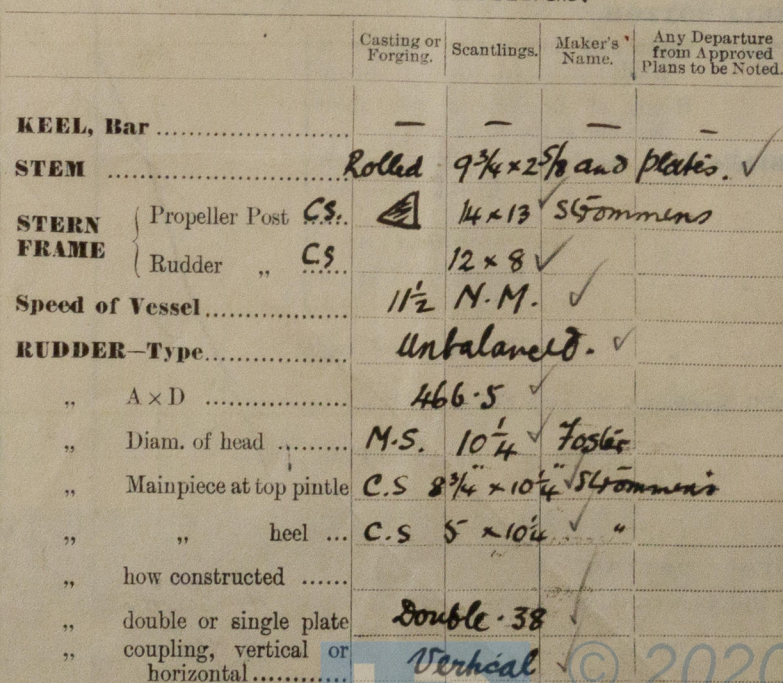 Casting or Forging. Scantlings. Maker's Name. Any Departure from Approved Plans to be Noted.
KEEL, Bar .................... — — — —
STEM .................... Rolled 9 3/4 × 2 5/8 and plates. ✓
STERN FRAME { Propeller Post C.S. 14 × 13 ✓ Strömmens
Rudder „ C.S 12 × 8 ✓
Speed of Vessel .................... 11 1/2 N.M. ✓
RUDDER—Type .................... Unbalanced. ✓
„ A × D .................... 466.5 ✓
„ Diam. of head .......... M.S. 10 1/4 ✓ Foster
„ Mainpiece at top pintle C.S 8 3/4" × 10 1/4" ✓ Strömmens
„ „ heel ... C.S 5 × 10 1/4 ✓ "
„ how constructed ......
„ double or single plate Double .38 ✓
„ coupling, vertical or horizontal .......... Vertical ✓
© 2020